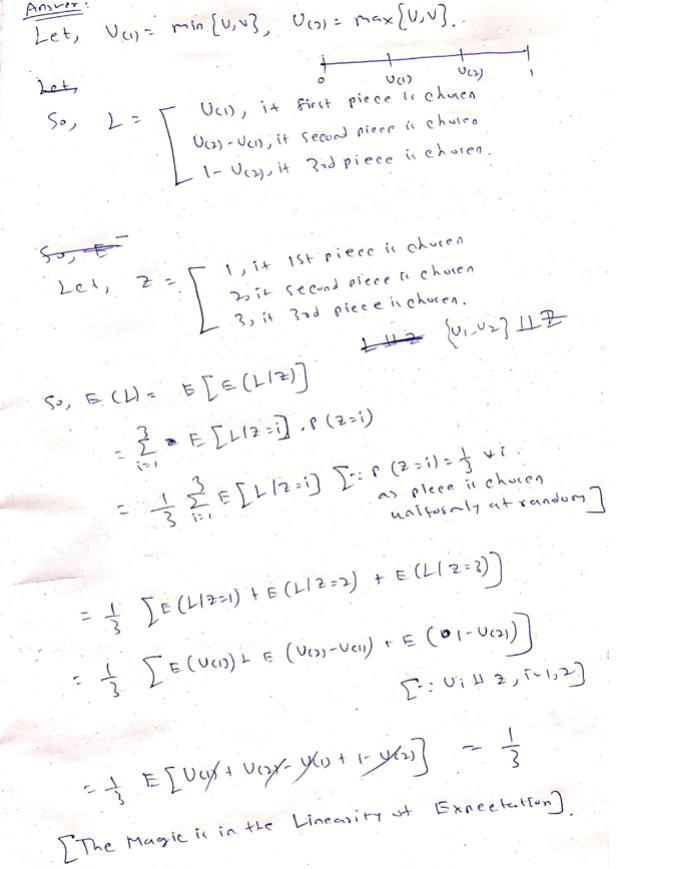 Answer:
Let, U(1) = min {U,V}, U(2) = max {U,V}..
0 U(1) U(2) 1
Let,
So, L = [ U(1), if first piece is chosen
U(2) - U(1), if second piece is chosen
1 - U(2), if 3rd piece is chosen.
So, E
Let, Z = [ 1, if 1st piece is chosen
2, if second piece is chosen
3, if 3rd piece is chosen.
L ⫫ Z {U1, U2} ⫫ Z
So, E(L) = E[E(L|Z)]
= 3∑i=1 E[L|Z=i] . P(Z=i)
= 1/3 3∑i=1 E[L|Z=i] [∵ P(Z=i) = 1/3 ∀ i.
as piece is chosen
uniformly at random]
= 1/3 [E(L|Z=1) + E(L|Z=2) + E(L|Z=3)]
= 1/3 [E(U(1)) + E(U(2) - U(1)) + E(1 - U(2))]
[∵ Ui ⫫ Z, i=1,2]
= 1/3 E[U(1) + U(2) - U(1) + 1 - U(2)] = 1/3
[The Magic is in the Linearity of Expectation].